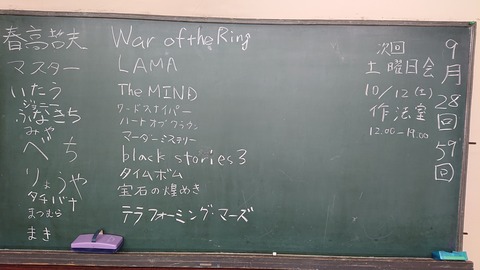 春高哲夫
マスター
いたう
ジョニー
ふなきち
みや
へち
りょうや
タチバナ
まつむら
まき
War of the Ring
LAMA
The MIND
ワードスナイパー
ハートオブクラウン
マーダーミステリー
black stories 3
タイムボム
宝石の煌めき
テラフォーミング・マーズ
次回
土曜日会
10/12(土)
作法室
12:00-19:00
9月28回59回